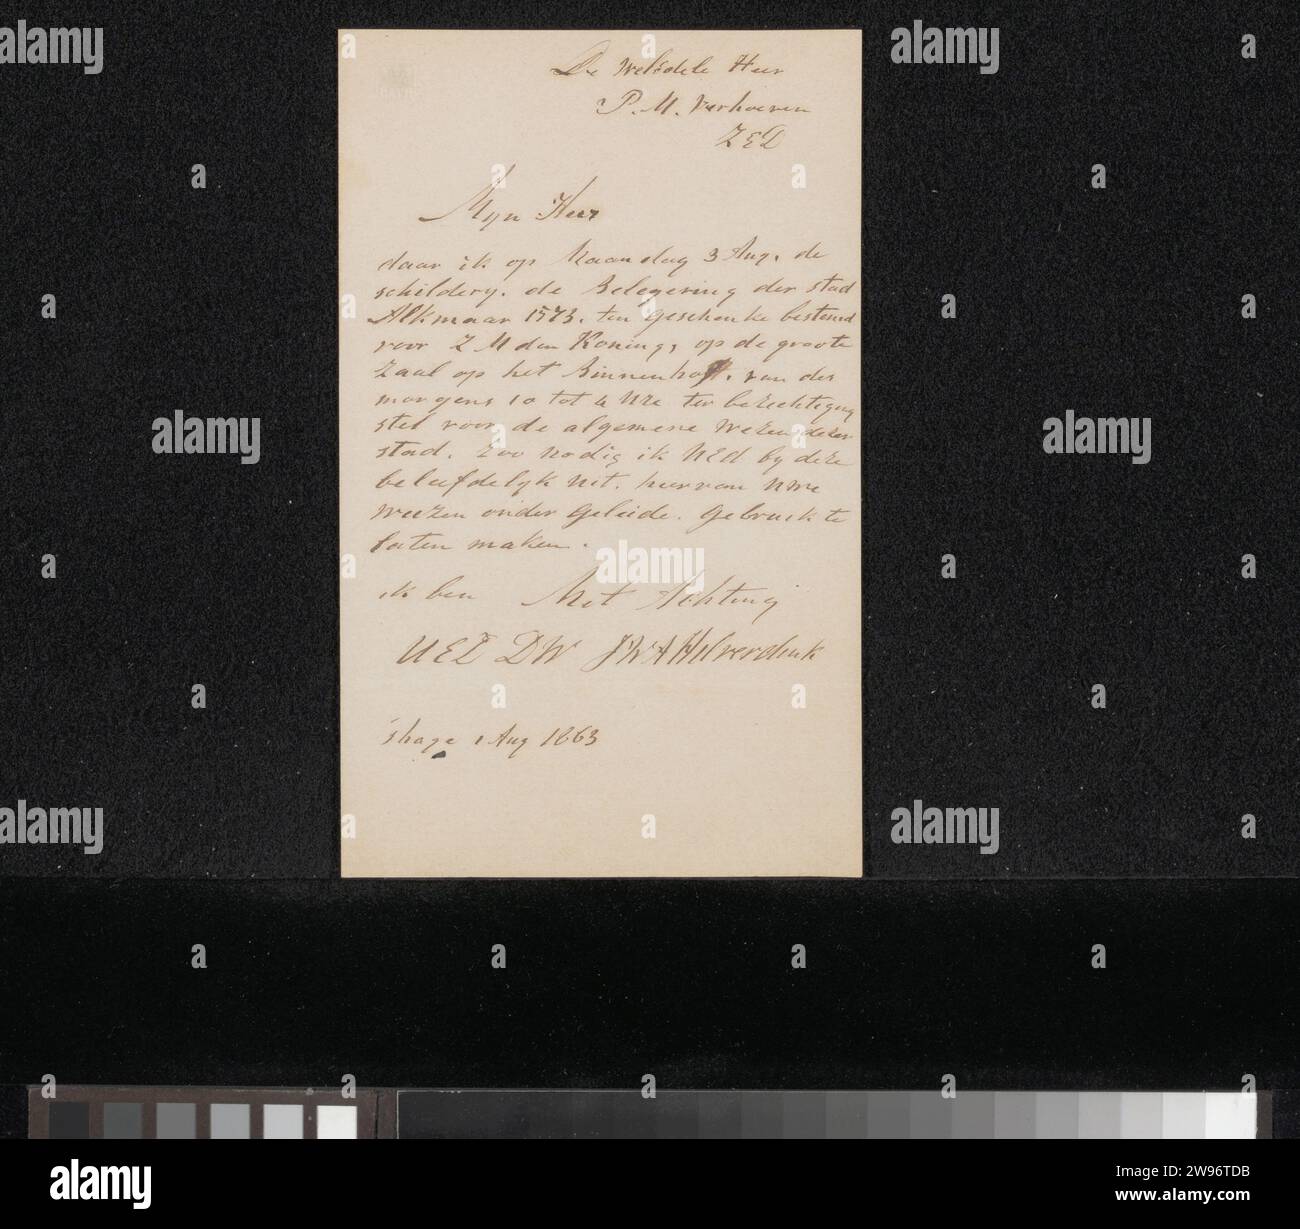 De Weledele Heer
P. M. Verhoeven
ZED
Myn Heer
daar ik op Maandag 3 Aug. de
schildery. de Belegering der stad
Alkmaar 1573. ten geschenke bestemd
voor Z M den Koning, op de groote
Zaal op het Binnenhoff. van des
morgens 10 tot 4 ure ter bezichtiging
stel voor de algemene Wezen dezer
stad. zoo nodig ik UEd by deze
beleefdelyk uit. hiervan Uwe
Weezen onder geleide. gebruik te
laten maken.
ik ben Met Achting
UEZ DW J W A Hilverdink
'shage 1 Aug 1863
alamy
Image ID: 2W96TDB
www.alamy.com